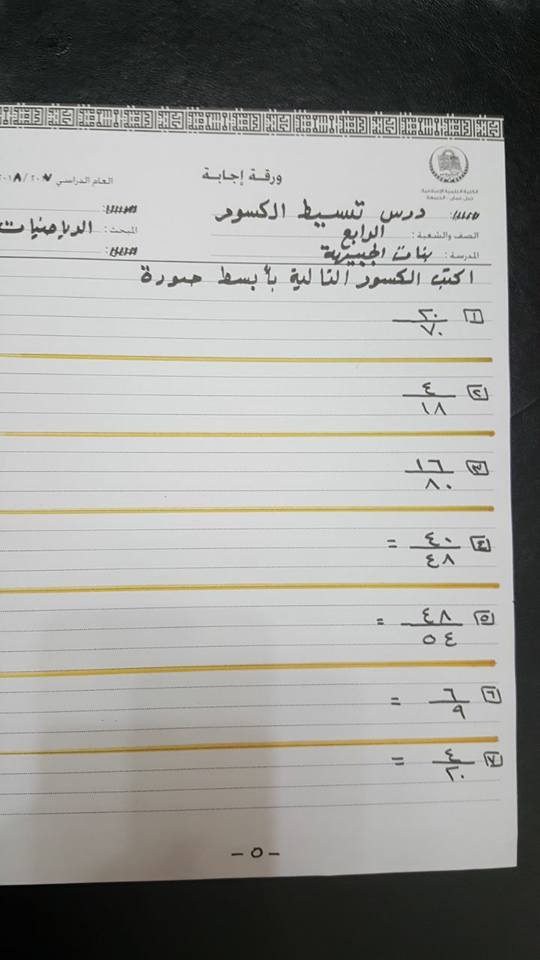 الكلية العلمية الإسلامية
جبل عمان - الجبيهة
ورقة إجابة
العام الدراسي ٢٠١٨/٢٠١٧
درس تبسيط الكسور
الصف والشعبة : الرابع
المبحث : الرياضيات
المدرسة : بنات الجبيهة
اكتب الكسور التالية بأبسط صورة
١ ٢٠/٧٠
٢ ٤/١٨
٣ ١٦/٨٠
٤ ٤٠/٤٨ =
٥ ٤٨/٥٤ =
٦ ٦/٩ =
٧ ٤/٢٠ =
- ٥ -